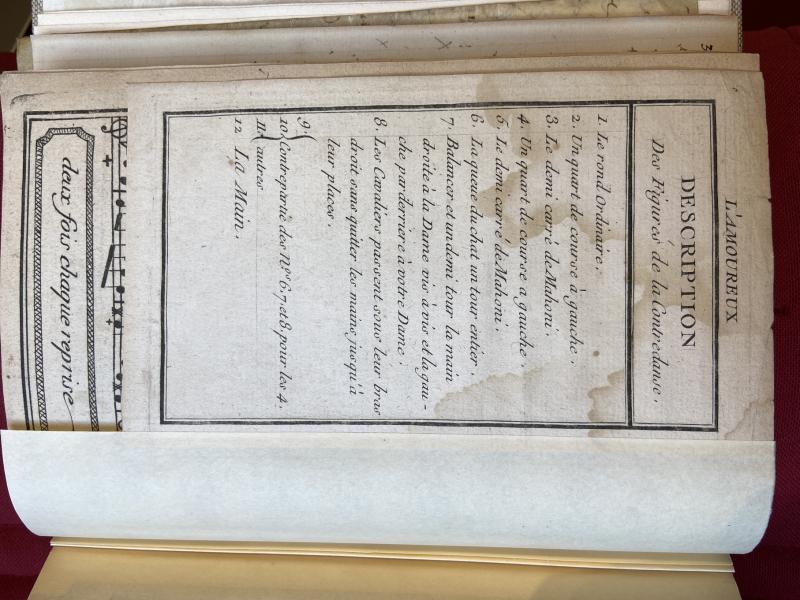 L'AMOUREUX
DESCRIPTION
Des Figures de la Contredanse.
1. Le rond Ordinaire.
2. Un quart de course à gauche.
3. Le demi carré de Mahoni.
4. Un quart de course a gauche.
5. Le demi carré de Mahoni.
6. La queue du chat un tour entier.
7. Balancer et un demi tour la main
droite à la Dame vis à vis et la gau-
che par derriere à votre Dame.
8. Les Cavaliers passent sous leur bras
droit sans quitter les mains jusqu'à
leur places.
9.
10. Contrepartie des Nos 6. 7. et 8. pour les 4.
11. autres
12 La Main.
deux fois chaque reprise
3